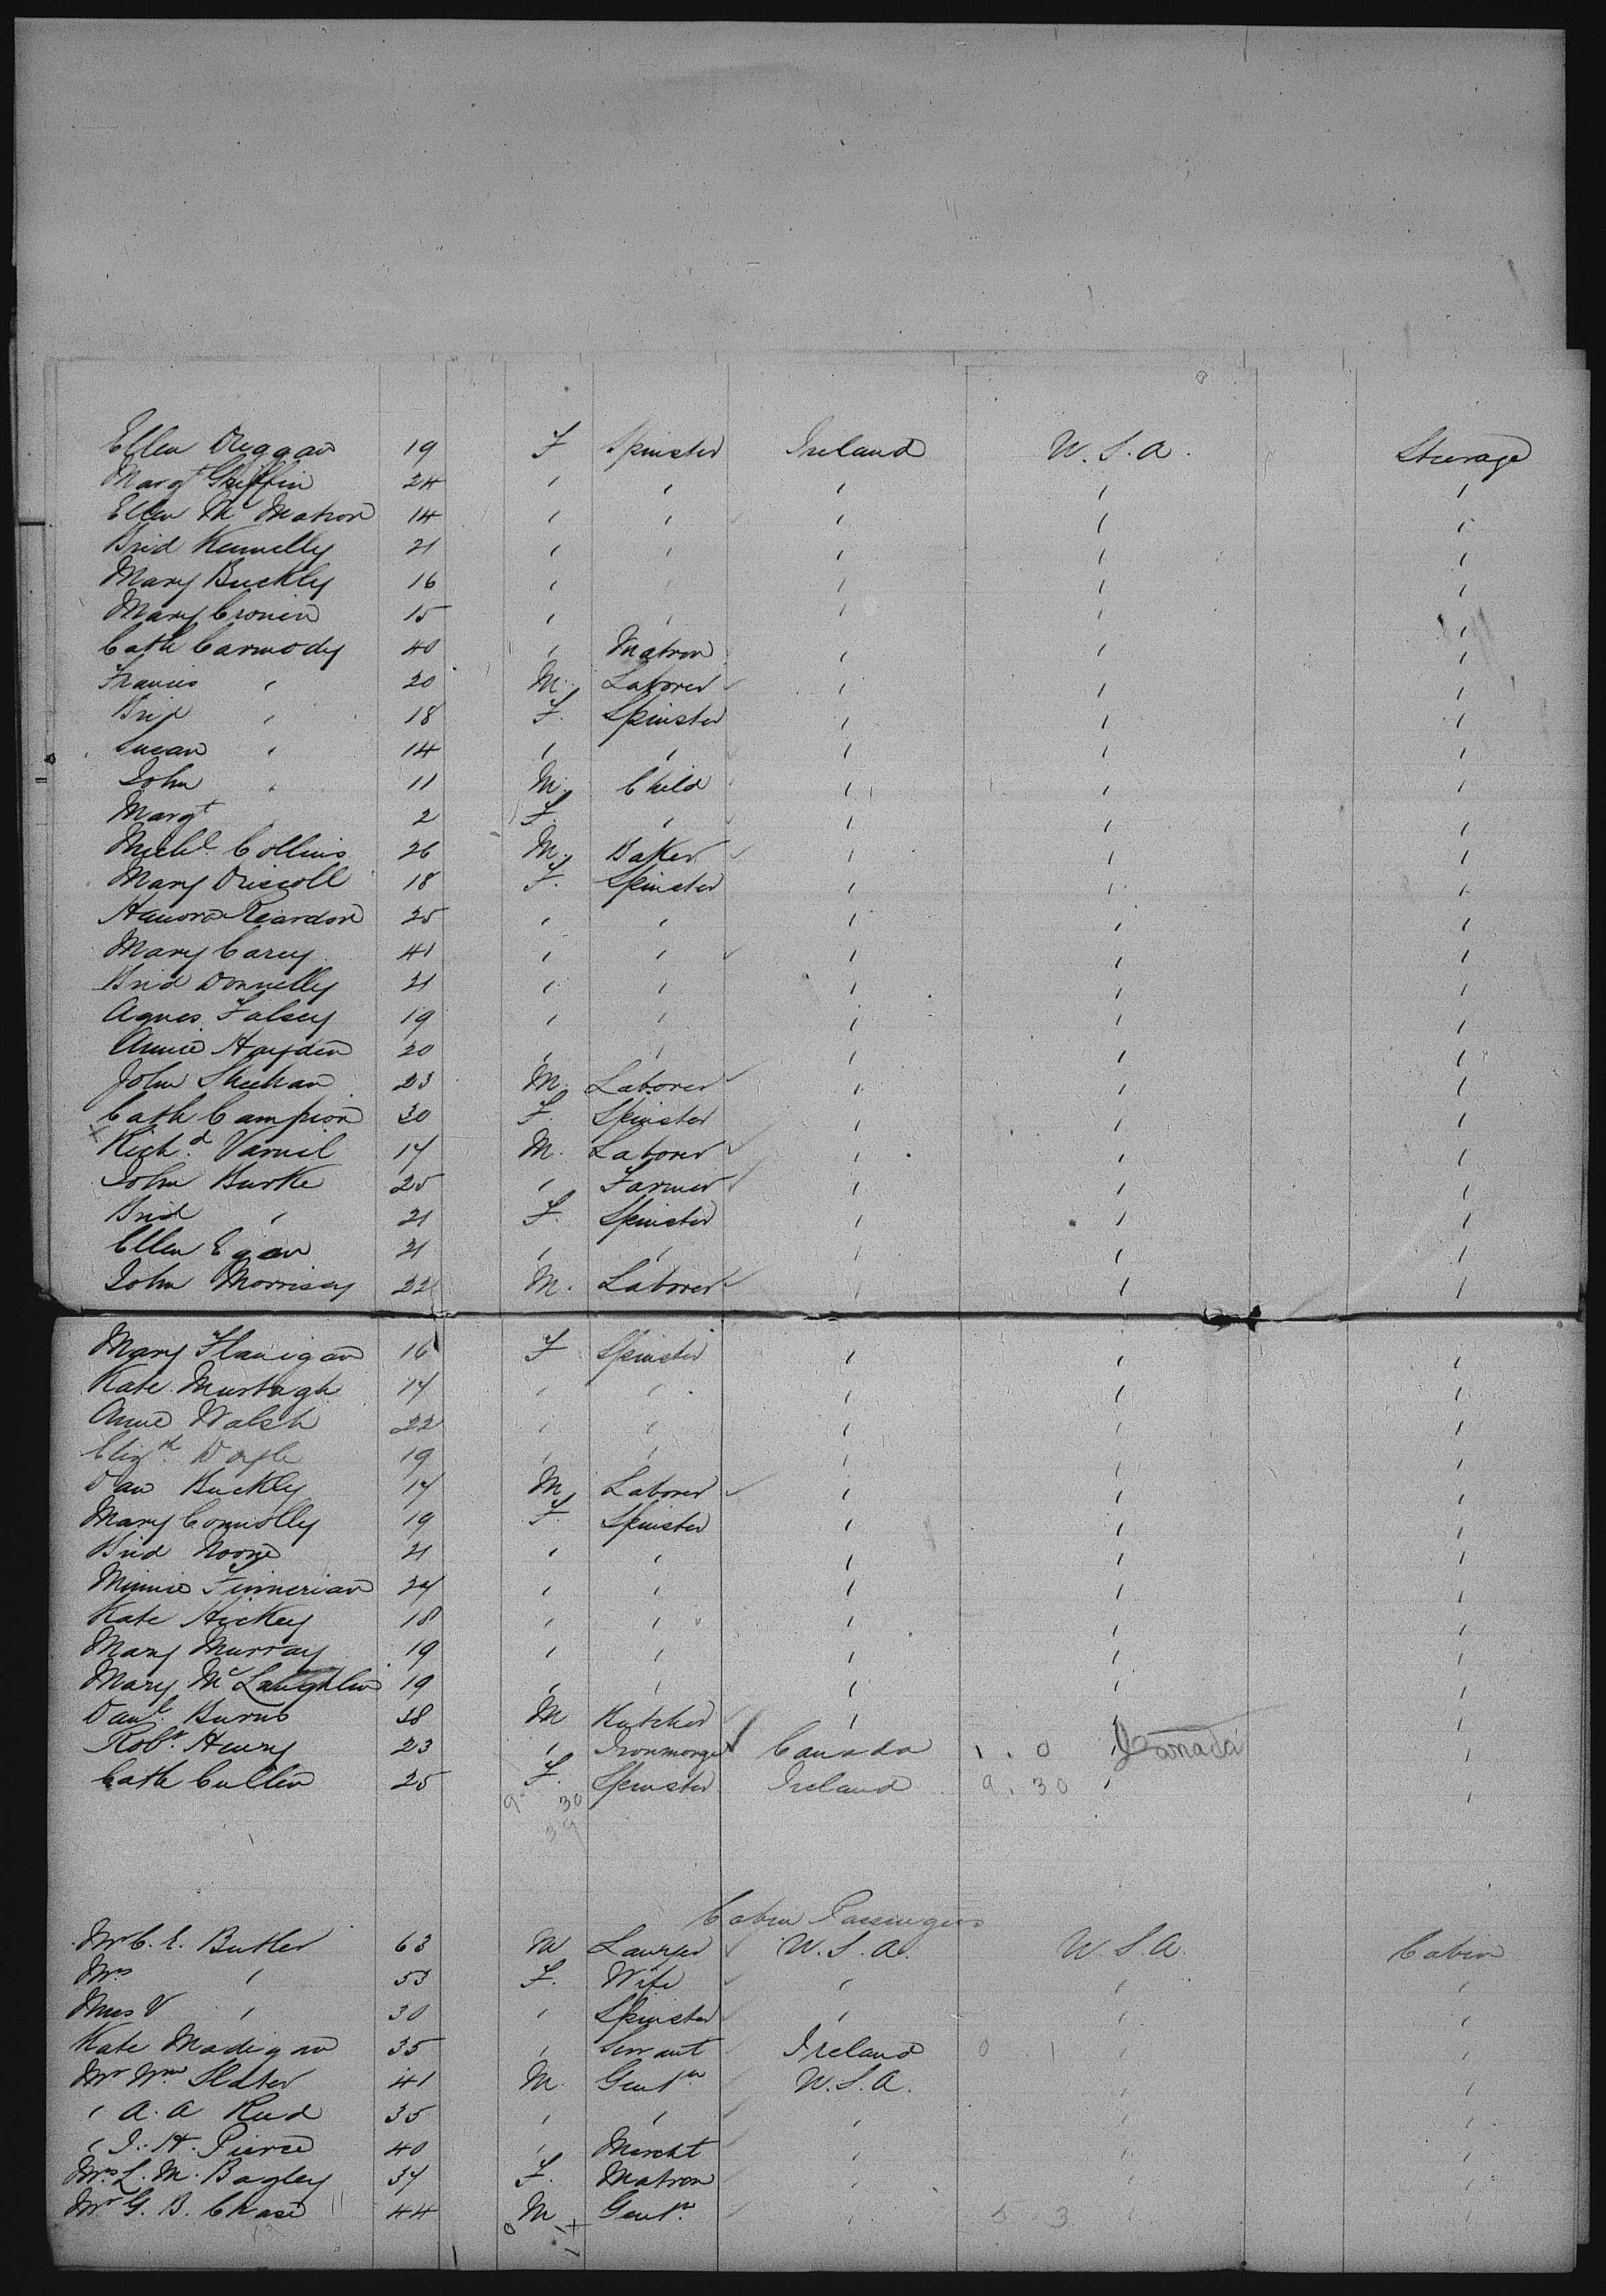 Ellen Duggan 19 F Spinster Ireland U.S.A. Steerage
Margt Griffin 24 " " " " "
Ellen Mc Mahon 14 " " " " "
Brid Kennelly 21 " " " "
Mary Buckly 16 " " " "
Mary Cronin 15 " " " " "
Cath Carmody 40 " Matron " " "
Francis " 20 M. Laborer " " "
Brid " 18 F. Spinster " " "
Susan " 14 " " " " "
John " 11 M. Child " " "
Margt 2 F. " " " "
Michl. Collins 26 M. Baker " " "
Mary Driscoll 18 F. Spinster " " "
Hanora Reardon 25 " " " " "
Mary Carey 41 " " " " "
Brid Donnelly 21 " " " " "
Agnes Falsey 19 " " " " "
Annie Hayden 20 " " " " "
John Sheehan 23 M. Laborer " " "
Cath Campion 30 F. Spinster " " "
x Richd. Varnil 17 M. Laborer " " "
John Burke 25 " Farmer " " "
Brid " 21 F. Spinster " " "
Ellen Egan 21 " " " " "
John Morrisey 22 M. Laborer " " "
Mary Flanigan 16 F Spinster " " "
Kate Murtagh 17 " " " " "
Anne Walsh 22 " " " " "
Elizth. Doyle 19 " " " " "
Dan Buckley 17 M Laborer " " "
Mary Connolly 19 F Spinster " " "
Brid Noone 21 " " " " "
Minnie Finnerian 27 " " " " "
Kate Hickey 18 " " " " "
Mary Murray 19 " " " " "
Mary Mc Laughlin 19 " " " " "
Danl. Burns 38 M Butcher " " "
Robt. Henry 23 " Ironmonger Canada 1 . 0 " Canada "
Cath Cullen 25 F. Spinster Ireland 9 . 30 " "
9 30
39
Cabin Passengers
Mr C. E. Butler 63 M Lawyer U.S.A. U.S.A. Cabin
Mrs " 53 F. Wife " " "
Miss V " 30 " Spinster " " "
Kate Madigan 35 " Servant Ireland 0 1 " "
Mr Wm Slater 41 M. Gentn U.S.A. " "
" A. A Reed 35 " " " " "
" J. H. Pierce 40 " Mercht " "
Mrs L. M. Bagley 37 F. Matron " " "
Mr G. B. Chase 44 M Gentn. " 5 3 " "